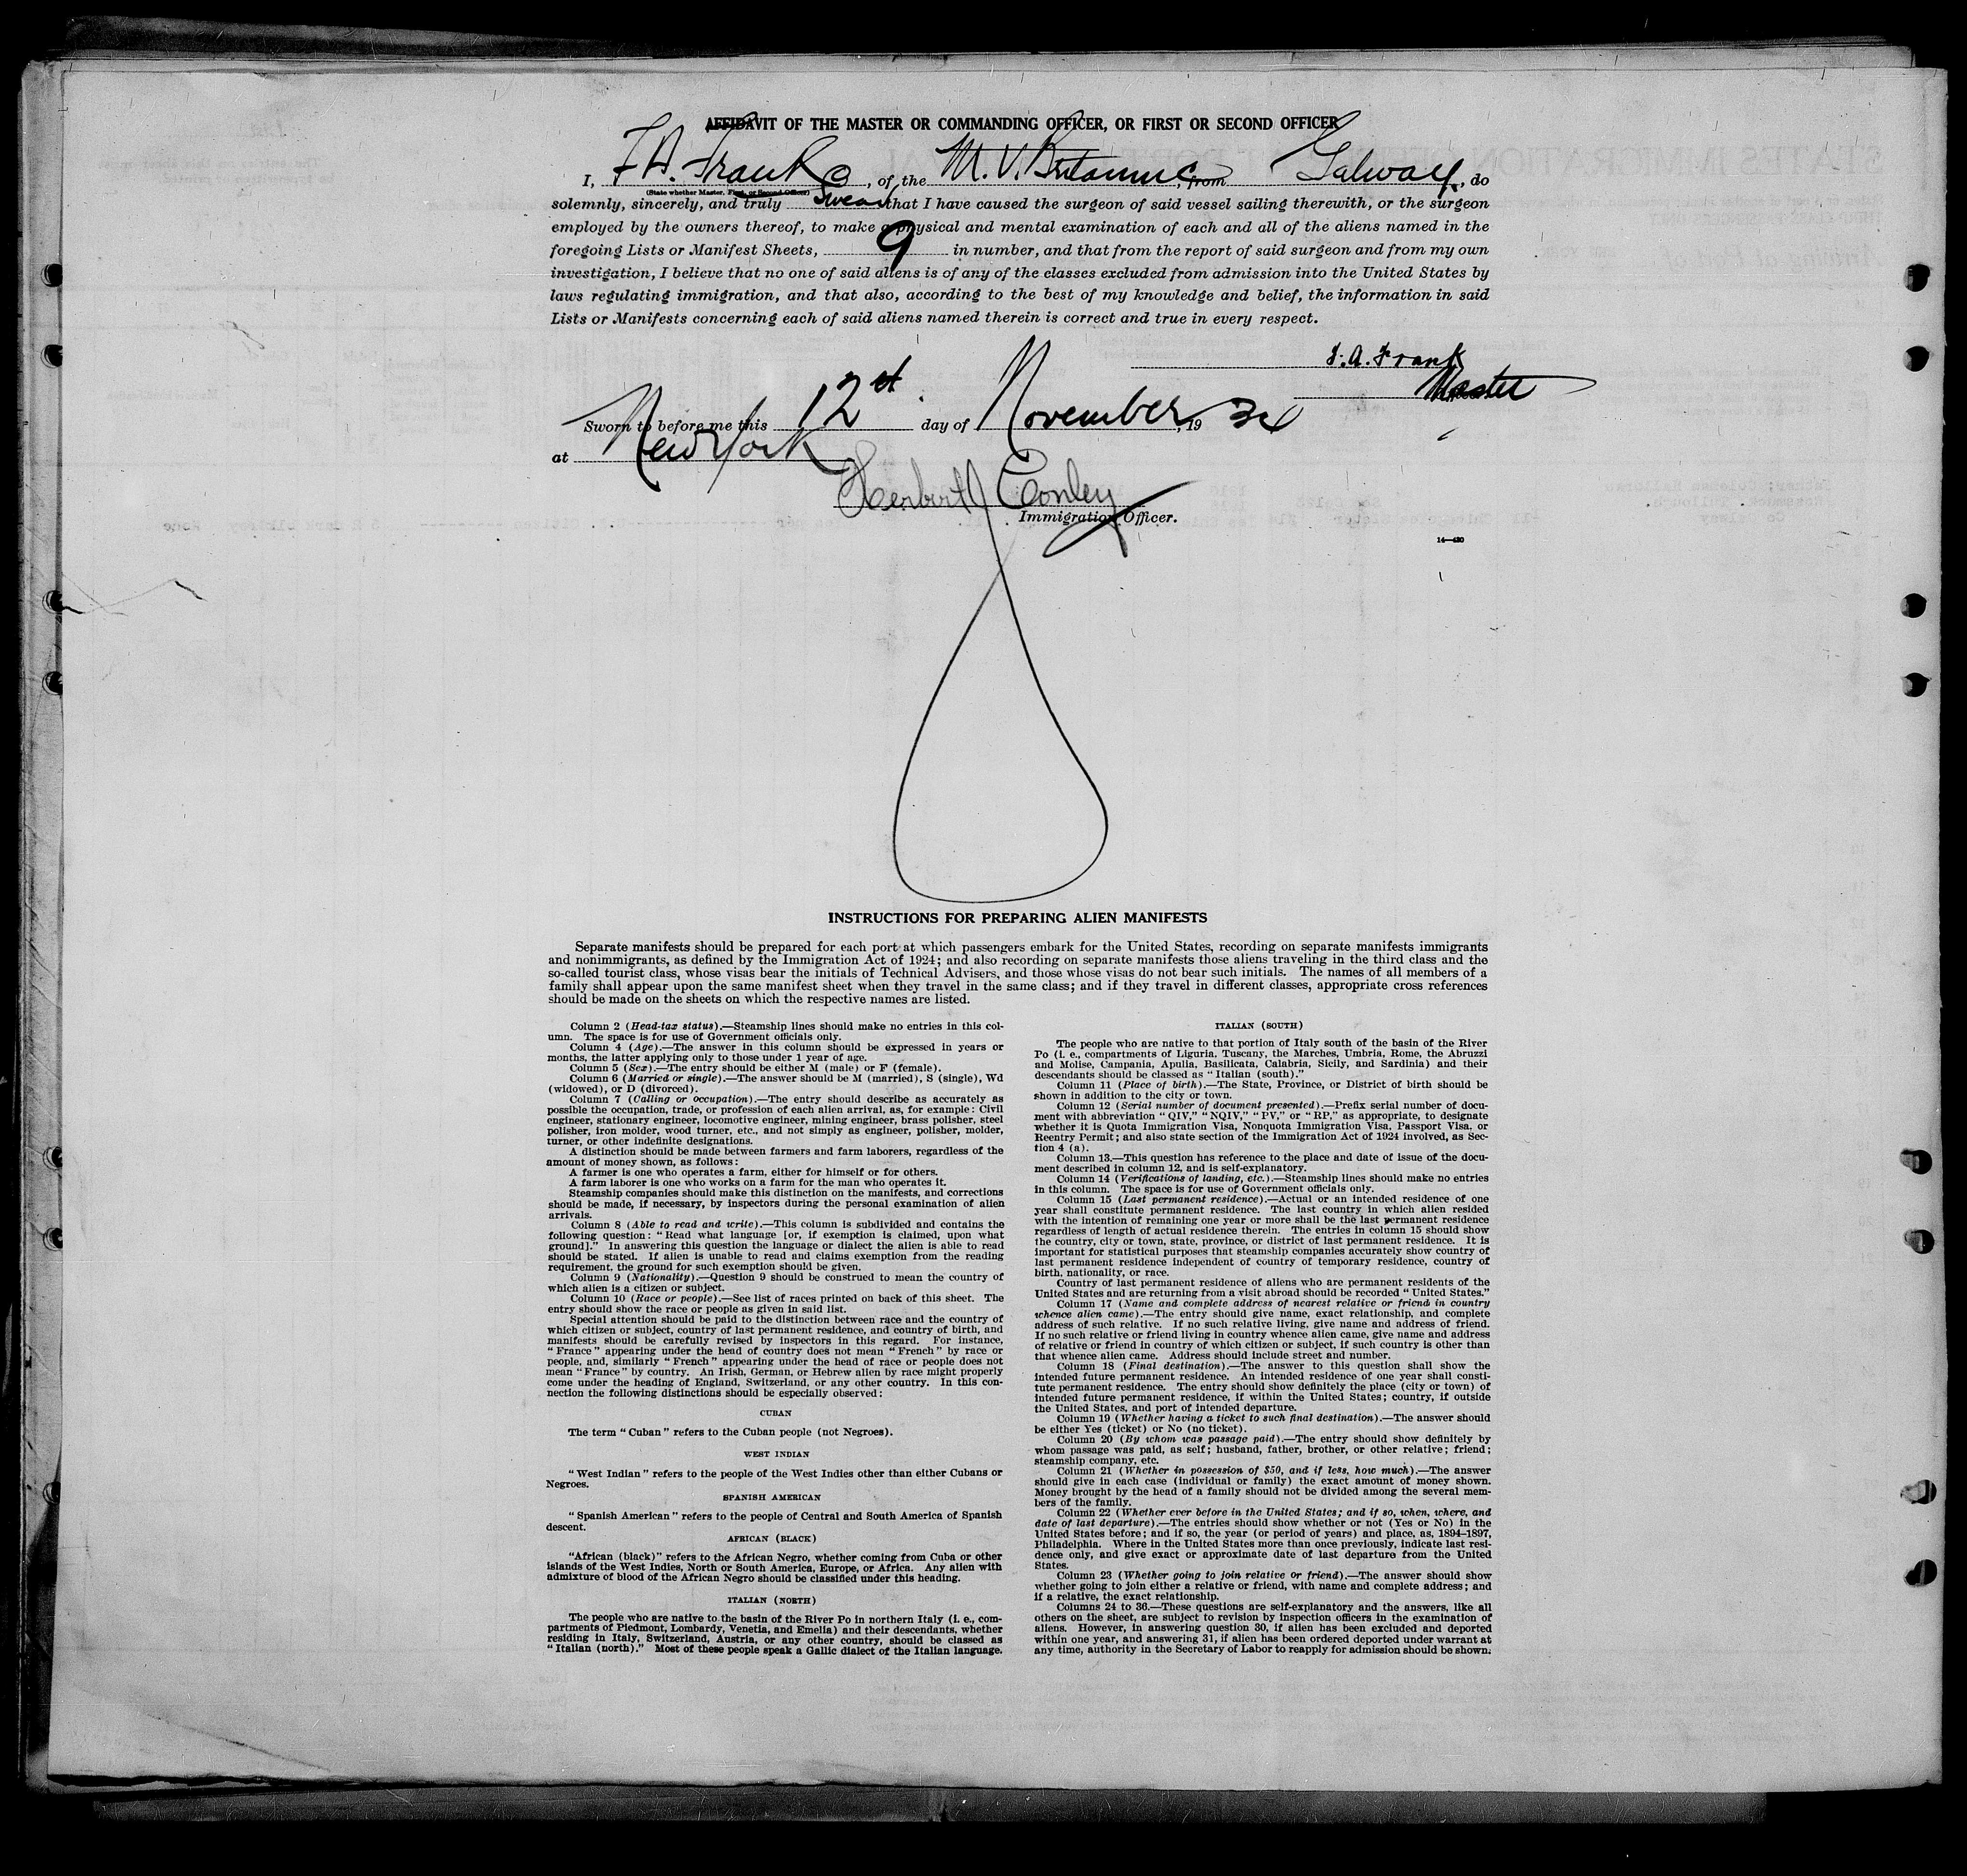 AFFIDAVIT OF THE MASTER OR COMMANDING OFFICER, OR FIRST OR SECOND OFFICER
I, F.A. Frank, of the M.V. Britannic, from Galway, do
(State whether Master, First, or Second Officer)
solemnly, sincerely, and truly swear that I have caused the surgeon of said vessel sailing therewith, or the surgeon
employed by the owners thereof, to make a physical and mental examination of each and all of the aliens named in the
foregoing Lists or Manifest Sheets, 9 in number, and that from the report of said surgeon and from my own
investigation, I believe that no one of said aliens is of any of the classes excluded from admission into the United States by
laws regulating immigration, and that also, according to the best of my knowledge and belief, the information in said
Lists or Manifests concerning each of said aliens named therein is correct and true in every respect.
F. A. Frank
Master
Sworn to before me this 12 day of November, 1934
at New York
Herbert J Conley
Immigration Officer.
14—420
INSTRUCTIONS FOR PREPARING ALIEN MANIFESTS
Separate manifests should be prepared for each port at which passengers embark for the United States, recording on separate manifests immigrants
and nonimmigrants, as defined by the Immigration Act of 1924; and also recording on separate manifests those aliens traveling in the third class and the
so-called tourist class, whose visas bear the initials of Technical Advisers, and those whose visas do not bear such initials. The names of all members of a
family shall appear upon the same manifest sheet when they travel in the same class; and if they travel in different classes, appropriate cross references
should be made on the sheets on which the respective names are listed.
Column 2 (Head-tax status).—Steamship lines should make no entries in this col-
umn. The space is for use of Government officials only.
Column 4 (Age).—The answer in this column should be expressed in years or
months, the latter applying only to those under 1 year of age.
Column 5 (Sex).—The entry should be either M (male) or F (female).
Column 6 (Married or single).—The answer should be M (married), S (single), Wd
(widowed), or D (divorced).
Column 7 (Calling or occupation).—The entry should describe as accurately as
possible the occupation, trade, or profession of each alien arrival, as, for example: Civil
engineer, stationary engineer, locomotive engineer, mining engineer, brass polisher, steel
polisher, iron molder, wood turner, etc., and not simply as engineer, polisher, molder,
turner, or other indefinite designations.
A distinction should be made between farmers and farm laborers, regardless of the
amount of money shown, as follows:
A farmer is one who operates a farm, either for himself or for others.
A farm laborer is one who works on a farm for the man who operates it.
Steamship companies should make this distinction on the manifests, and corrections
should be made, if necessary, by inspectors during the personal examination of alien
arrivals.
Column 8 (Able to read and write).—This column is subdivided and contains the
following question: "Read what language [or, if exemption is claimed, upon what
ground]." In answering this question the language or dialect the alien is able to read
should be stated. If alien is unable to read and claims exemption from the reading
requirement, the ground for such exemption should be given.
Column 9 (Nationality).—Question 9 should be construed to mean the country of
which alien is a citizen or subject.
Column 10 (Race or people).—See list of races printed on back of this sheet. The
entry should show the race or people as given in said list.
Special attention should be paid to the distinction between race and the country of
which citizen or subject, country of last permanent residence, and country of birth, and
manifests should be carefully revised by inspectors in this regard. For instance,
"France" appearing under the head of country does not mean "French" by race or
people, and, similarly "French" appearing under the head of race or people does not
mean "France" by country. An Irish, German, or Hebrew alien by race might properly
come under the heading of England, Switzerland, or any other country. In this con-
nection the following distinctions should be especially observed:
CUBAN
The term "Cuban" refers to the Cuban people (not Negroes).
WEST INDIAN
"West Indian" refers to the people of the West Indies other than either Cubans or
Negroes.
SPANISH AMERICAN
"Spanish American" refers to the people of Central and South America of Spanish
descent.
AFRICAN (BLACK)
"African (black)" refers to the African Negro, whether coming from Cuba or other
islands of the West Indies, North or South America, Europe, or Africa. Any alien with
admixture of blood of the African Negro should be classified under this heading.
ITALIAN (NORTH)
The people who are native to the basin of the River Po in northern Italy (i. e., com-
partments of Piedmont, Lombardy, Venetia, and Emelia) and their descendants, whether
residing in Italy, Switzerland, Austria, or any other country, should be classed as
"Italian (north)." Most of these people speak a Gallic dialect of the Italian language.
ITALIAN (SOUTH)
The people who are native to that portion of Italy south of the basin of the River
Po (i. e., compartments of Liguria, Tuscany, the Marches, Umbria, Rome, the Abruzzi
and Molise, Campania, Apulia, Basilicata, Calabria, Sicily, and Sardinia) and their
descendants should be classed as "Italian (south)."
Column 11 (Place of birth).—The State, Province, or District of birth should be
shown in addition to the city or town.
Column 12 (Serial number of document presented).—Prefix serial number of docu-
ment with abbreviation "QIV," "NQIV," "PV," or "RP," as appropriate, to designate
whether it is Quota Immigration Visa, Nonquota Immigration Visa, Passport Visa, or
Reentry Permit; and also state section of the Immigration Act of 1924 involved, as Sec-
tion 4 (a).
Column 13.—This question has reference to the place and date of issue of the docu-
ment described in column 12, and is self-explanatory.
Column 14 (Verifications of landing, etc.).—Steamship lines should make no entries
in this column. The space is for use of Government officials only.
Column 15 (Last permanent residence).—Actual or an intended residence of one
year shall constitute permanent residence. The last country in which alien resided
with the intention of remaining one year or more shall be the last permanent residence
regardless of length of actual residence therein. The entries in column 15 should show
the country, city or town, state, province, or district of last permanent residence. It is
important for statistical purposes that steamship companies accurately show country of
last permanent residence independent of country of temporary residence, country of
birth, nationality, or race.
Country of last permanent residence of aliens who are permanent residents of the
United States and are returning from a visit abroad should be recorded "United States."
Column 17 (Name and complete address of nearest relative or friend in country
whence alien came).—The entry should give name, exact relationship, and complete
address of such relative. If no such relative living, give name and address of friend.
If no such relative or friend living in country whence alien came, give name and address
of relative or friend in country of which citizen or subject, if such country is other than
that whence alien came. Address should include street and number.
Column 18 (Final destination).—The answer to this question shall show the
intended future permanent residence. An intended residence of one year shall consti-
tute permanent residence. The entry should show definitely the place (city or town) of
intended future permanent residence, if within the United States; country, if outside
the United States, and port of intended departure.
Column 19 (Whether having a ticket to such final destination).—The answer should
be either Yes (ticket) or No (no ticket).
Column 20 (By whom was passage paid).—The entry should show definitely by
whom passage was paid, as self; husband, father, brother, or other relative; friend;
steamship company, etc.
Column 21 (Whether in possession of $50, and if less, how much).—The answer
should give in each case (individual or family) the exact amount of money shown.
Money brought by the head of a family should not be divided among the several mem-
bers of the family.
Column 22 (Whether ever before in the United States; and if so, when, where, and
date of last departure).—The entries should show whether or not (Yes or No) in the
United States before; and if so, the year (or period of years) and place, as, 1894–1897,
Philadelphia. Where in the United States more than once previously, indicate last resi-
dence only, and give exact or approximate date of last departure from the United
States.
Column 23 (Whether going to join relative or friend).—The answer should show
whether going to join either a relative or friend, with name and complete address; and
if a relative, the exact relationship.
Columns 24 to 36.—These questions are self-explanatory and the answers, like all
others on the sheet, are subject to revision by inspection officers in the examination of
aliens. However, in answering question 30, if alien has been excluded and deported
within one year, and answering 31, if alien has been ordered deported under warrant at
any time, authority in the Secretary of Labor to reapply for admission should be shown.